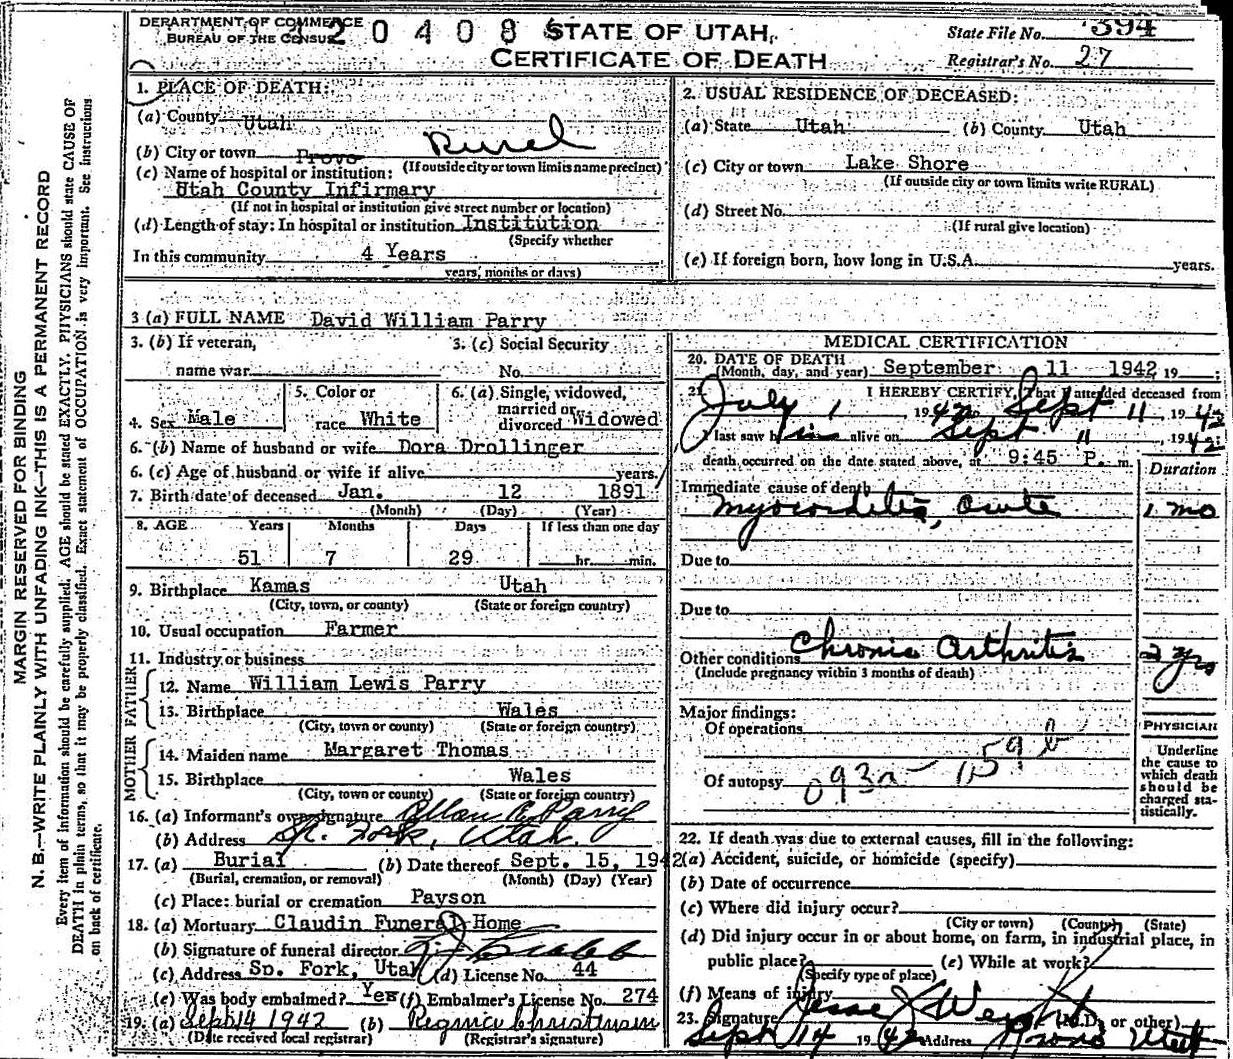 DEPARTMENT OF COMMERCE
BUREAU OF THE CENSUS
20408 STATE OF UTAH
CERTIFICATE OF DEATH
State File No. 394
Registrar's No. 27
MARGIN RESERVED FOR BINDING
N. B.—WRITE PLAINLY WITH UNFADING INK—THIS IS A PERMANENT RECORD
Every item of information should be carefully supplied. AGE should be stated EXACTLY. PHYSICIANS should state CAUSE OF
DEATH in plain terms, so that it may be properly classified. Exact statement of OCCUPATION is very important. See instructions
on back of certificate.
1. PLACE OF DEATH:
(a) County Utah
(b) City or town Provo Rural
(If outside city or town limits name precinct)
(c) Name of hospital or institution:
Utah County Infirmary
(If not in hospital or institution give street number or location)
(d) Length of stay: In hospital or institution Institution
(Specify whether
In this community 4 Years
years, months or days)
2. USUAL RESIDENCE OF DECEASED:
(a) State Utah (b) County Utah
(c) City or town Lake Shore
(If outside city or town limits write RURAL)
(d) Street No.
(If rural give location)
(e) If foreign born, how long in U.S.A. years.
3 (a) FULL NAME David William Parry
3. (b) If veteran, 3. (c) Social Security
name war No.
4. Sex Male
5. Color or
race White
6. (a) Single, widowed,
married or
divorced Widowed
6. (b) Name of husband or wife Dora Drollinger
6. (c) Age of husband or wife if alive years.
7. Birth date of deceased Jan. 12 1891
(Month) (Day) (Year)
8. AGE Years Months Days If less than one day
51 7 29 hr. min.
9. Birthplace Kamas Utah
(City, town, or county) (State or foreign country)
10. Usual occupation Farmer
11. Industry or business
FATHER
12. Name William Lewis Parry
13. Birthplace Wales
(City, town or county) (State or foreign country)
MOTHER
14. Maiden name Margaret Thomas
15. Birthplace Wales
(City, town or county) (State or foreign country)
16. (a) Informant's own signature Parry
(b) Address Sp. Fork, Utah.
17. (a) Burial (b) Date thereof Sept. 15, 1942
(Burial, cremation, or removal) (Month) (Day) (Year)
(c) Place: burial or cremation Payson
18. (a) Mortuary Claudin Funeral Home
(b) Signature of funeral director
(c) Address Sp. Fork, Utah (d) License No. 44
(e) Was body embalmed? Yes (f) Embalmer's License No. 274
19. (a) Sept 14 1942 (b) Christensen
(Date received local registrar) (Registrar's signature)
MEDICAL CERTIFICATION
20. DATE OF DEATH
(Month, day, and year) September 11 1942 19 :
21. I HEREBY CERTIFY, That I attended deceased from
July 1, 1942 to Sept 11, 1942
I last saw him alive on Sept 11, 1942;
death occurred on the date stated above, at 9:45 P. m.
Duration
Immediate cause of death
Myocarditis, Acute 1 mo
Due to
Due to
Other conditions Chronic Arthritis 2 yrs
(Include pregnancy within 3 months of death)
Major findings:
Of operations
Of autopsy 093a
59 b
PHYSICIAN
Underline
the cause to
which death
should be
charged sta-
tistically.
22. If death was due to external causes, fill in the following:
(a) Accident, suicide, or homicide (specify)
(b) Date of occurrence
(c) Where did injury occur?
(City or town) (County) (State)
(d) Did injury occur in or about home, on farm, in industrial place, in
public place? (e) While at work?
(Specify type of place)
(f) Means of injury
23. Signature Jesse J Weight (M.D. or other)
Sept 14 1942 Address Provo Utah